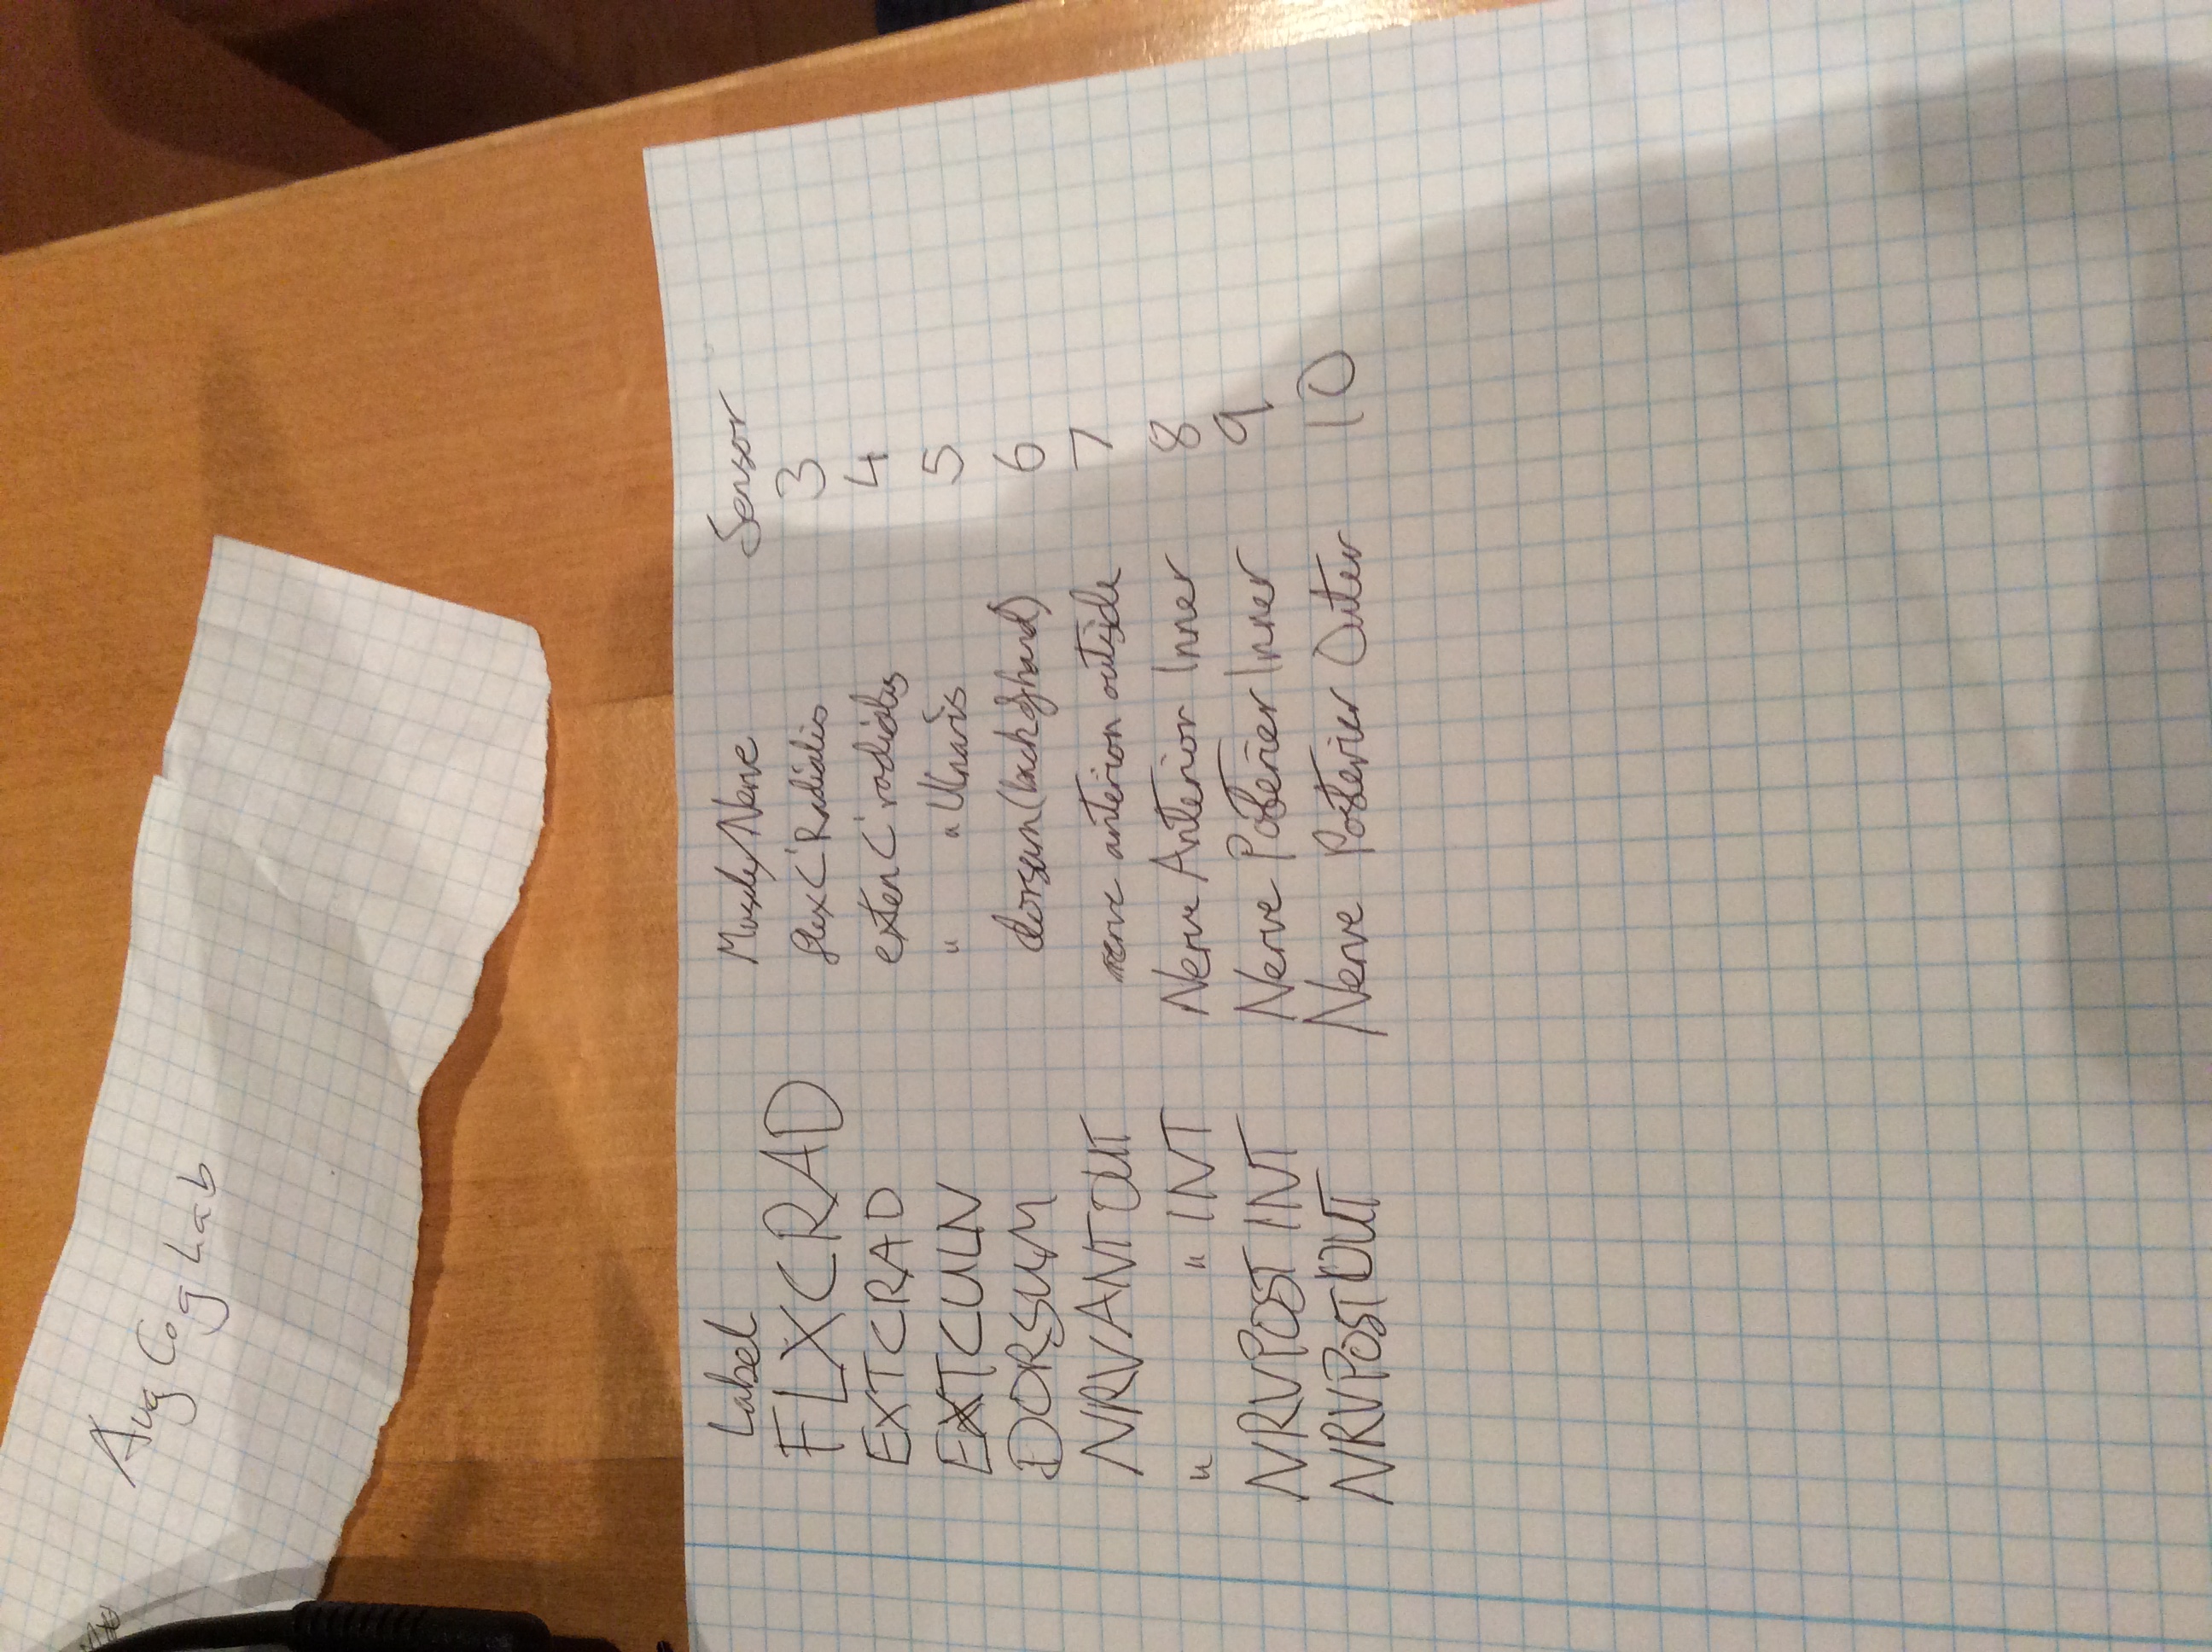 Aug Cog Lab
Label Muscle/Nerve Sensor
FLXCRAD flex C' Radialis 3
EXTCRAD exten C' radialis 4
EXTCULN " " Ulnaris 5
DORSUM dorsum (back of hand) 6
NRVANTOUT nerve anterion outside 7
" " INT Nerve Anterior Inner 8
NRVPOSTINT Nerve Posterier Inner 9
NRVPOSTOUT Nerve Posterier Outer 10